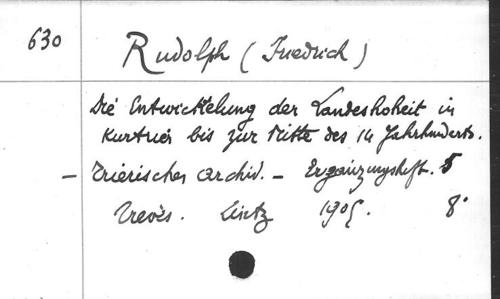 630 Rudolph (Friedrich)
Die Entwickelung der Landeshoheit in
Kurtrier bis zur Mitte des 14 Jahrhunderts.
- Trierisches archiv. - Ergänzungsheft. 5
Trevès. Lintz 1905. 8°